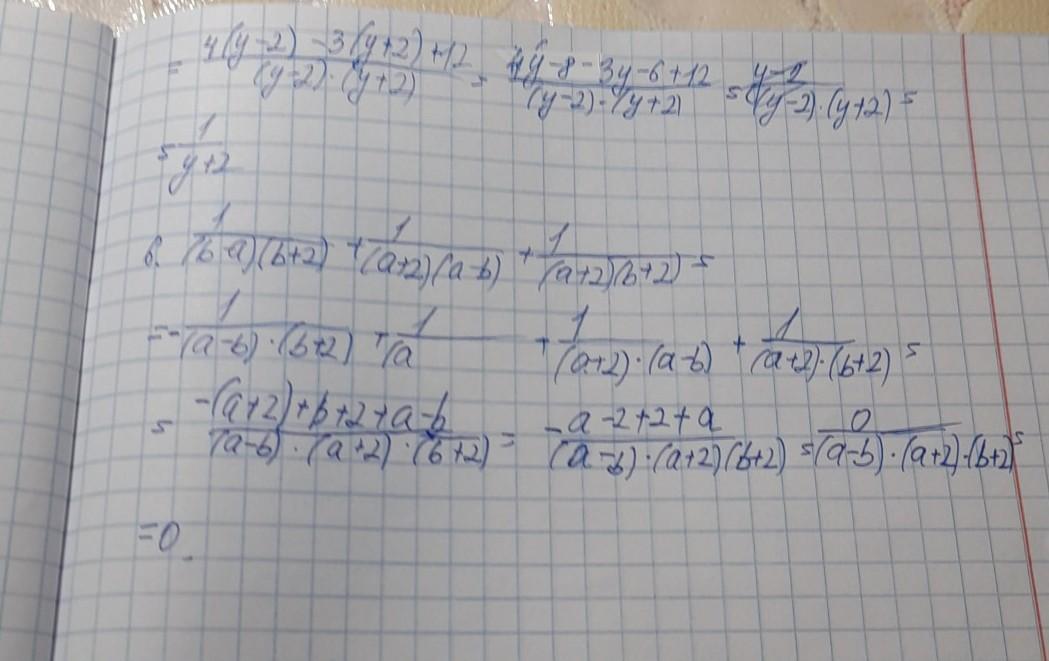 = (4(y-2) -3(y+2) +12)/((y-2)·(y+2)) = (4y-8-3y-6+12)/((y-2)·(y+2)) = (y-2)/((y-2)·(y+2)) =
= 1/(y+2)
6. 1/((b-a)(b+2)) + 1/((a+2)(a-b)) + 1/((a+2)(b+2)) =
= - 1/((a-b)·(b+2)) + 1/(a + 1/((a+2)·(a-b)) + 1/((a+2)·(b+2)) =
= (-(a+2)+b+2+a-b)/((a-b)·(a+2)·(b+2)) = (-a-2+2+a)/((a-b)·(a+2)(b+2)) = 0/((a-b)·(a+2)·(b+2)) =
=0.